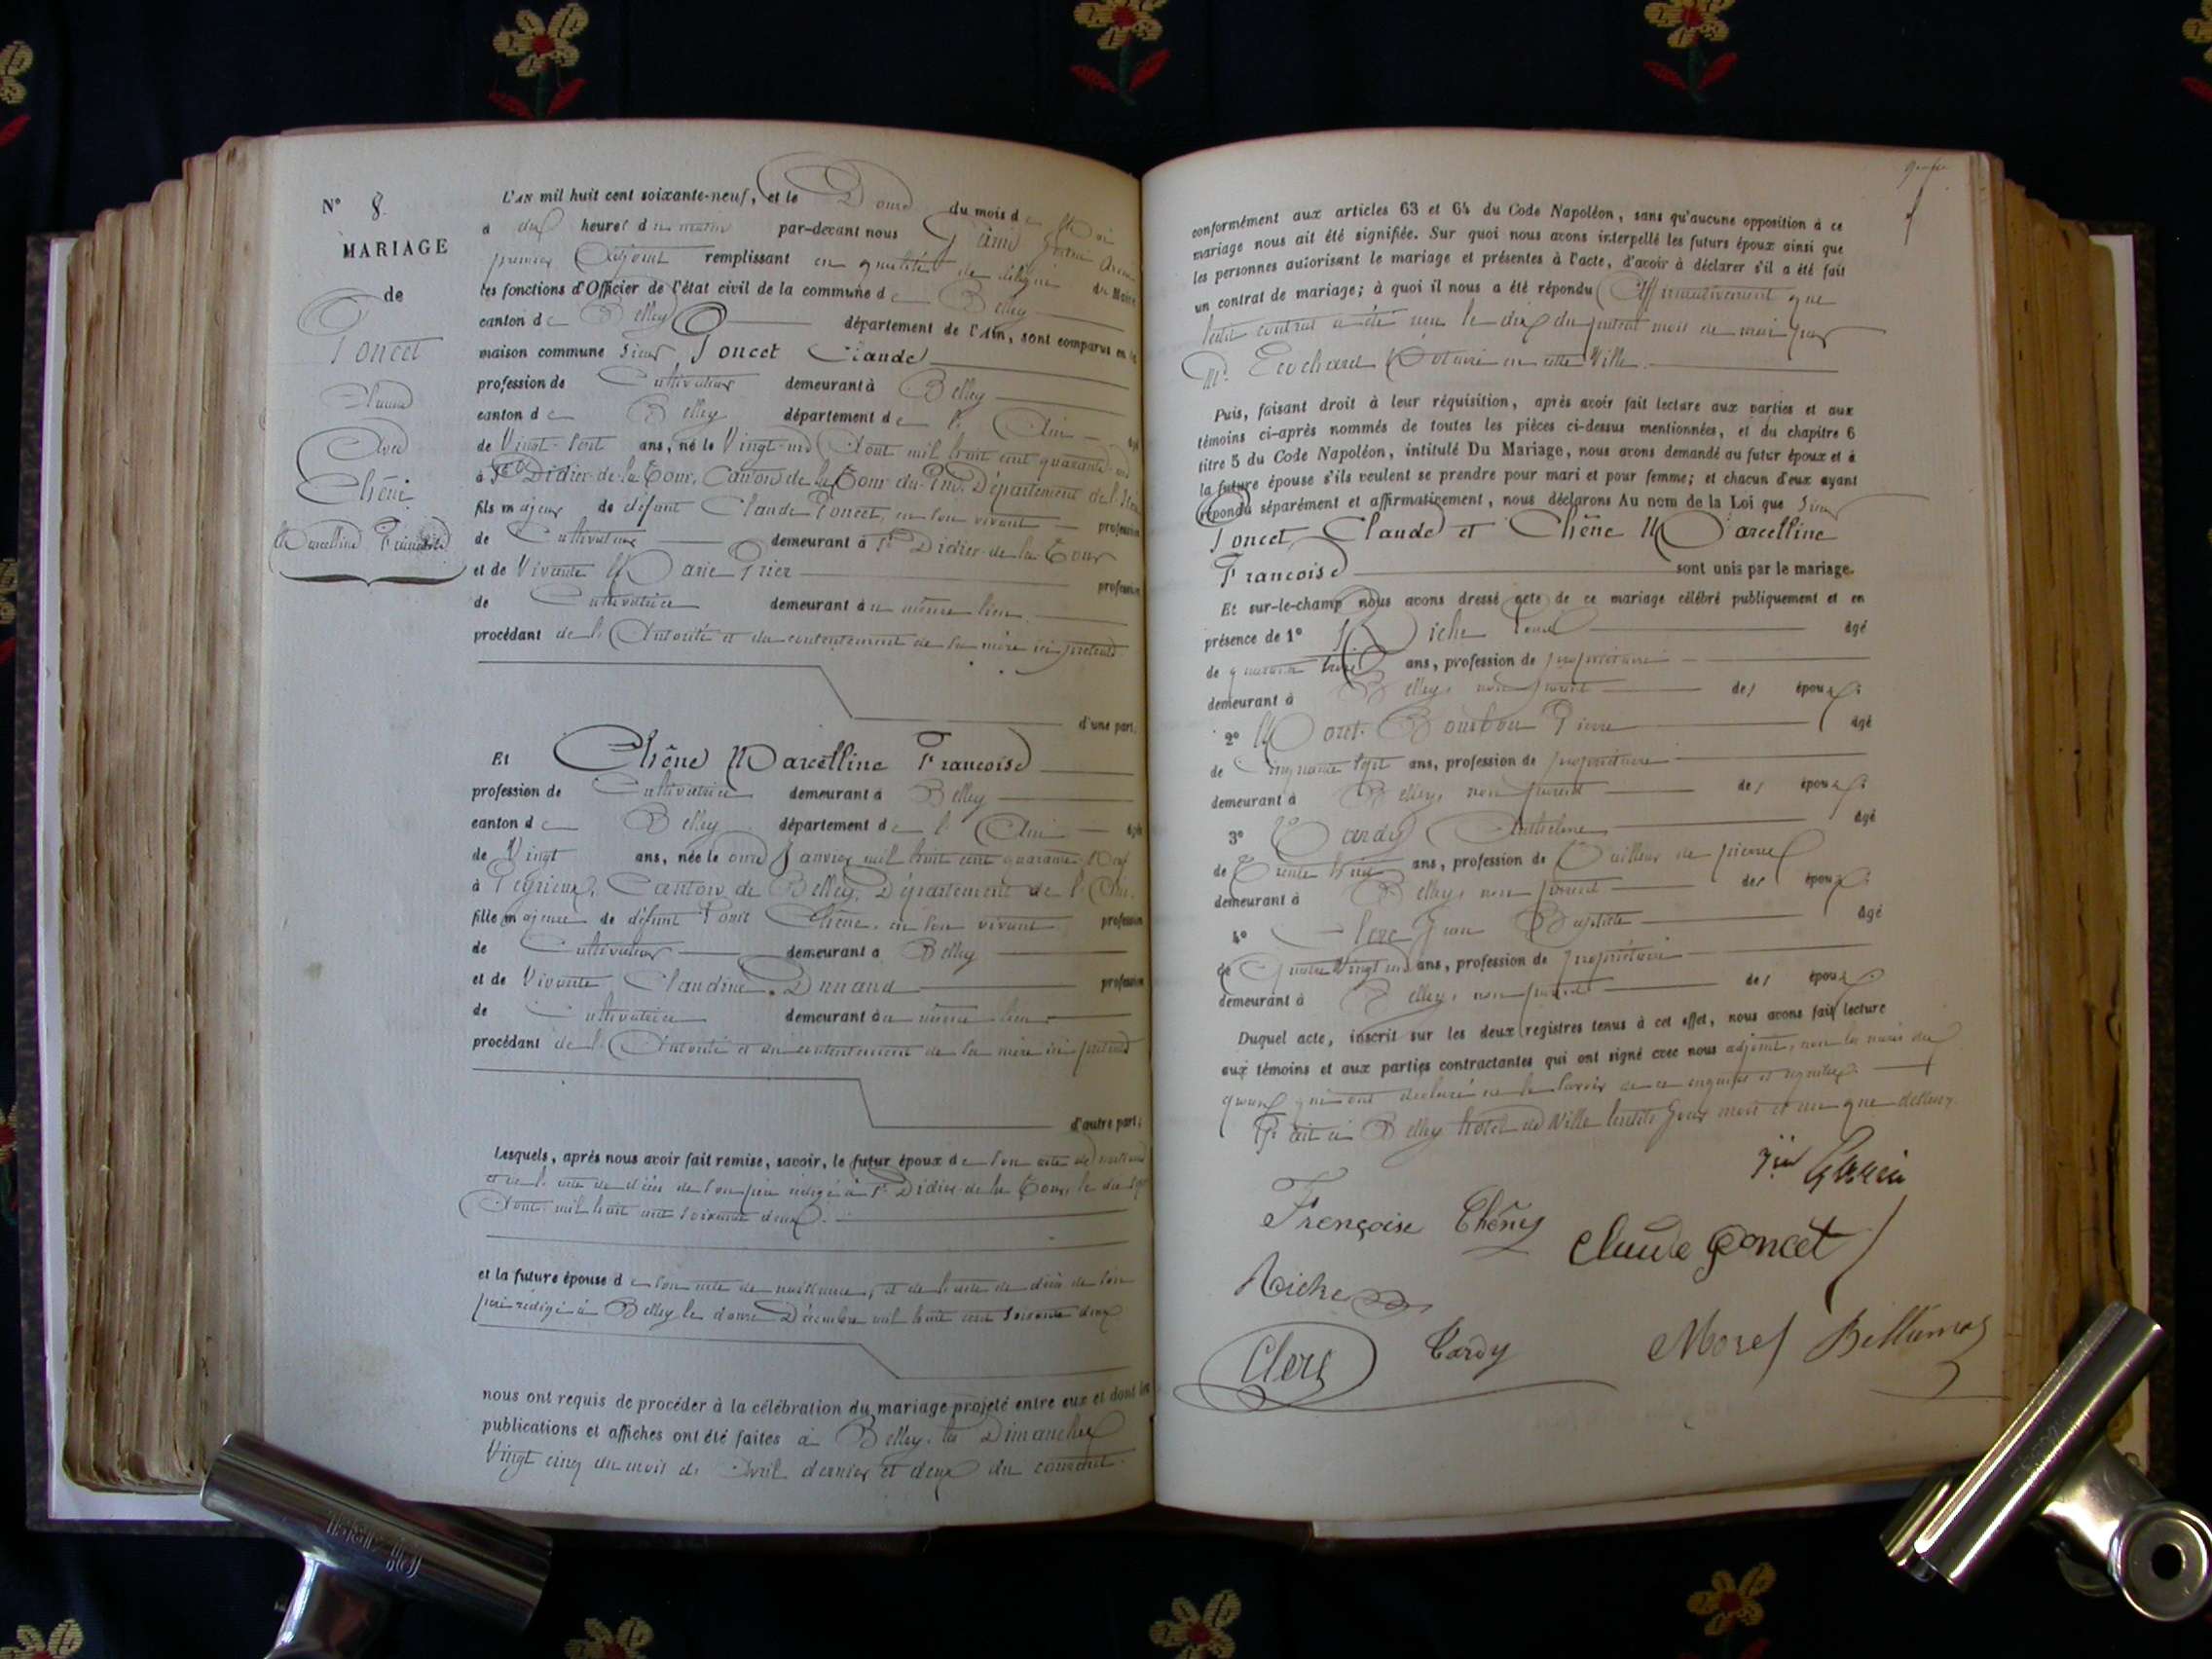 N° 8.
MARIAGE
de
Poncet
Claude
Avec
Chêne
Marcelline Françoise
L'AN mil huit cent soixante-neuf, et le Douze du mois de Mai
à dix heures du matin par-devant nous
premier Adjoint remplissant en qualité de délégué du Maire
les fonctions d'Officier de l'état civil de la commune de Belley
canton de Belley département de l'Ain, sont comparus en la
maison commune Sieur Poncet Claude
profession de Cultivateur demeurant à Belley
canton de Belley département de l'Ain âgé
de Vingt-sept ans, né le Vingt-un Août mil huit cent quarante-un
à St Didier-de-la-Tour, Canton de la Tour-du-Pin, Département de l'Isère
fils majeur de défunt Claude Poncet, en son vivant profession
de Cultivateur demeurant à St Didier-de-la-Tour
et de Vivante Marie Prier profession
de Cultivatrice demeurant au même lieu
procédant de l'Autorité et du consentement de sa mère ici présente
d'une part,
Et Chêne Marcelline Francoise
profession de Cultivatrice demeurant à Belley
canton de Belley département de l'Ain âgée
de Vingt ans, née le onze Janvier mil huit cent quarante-neuf
à Peyrieux, Canton de Belley, Département de l'Ain.
fille majeure de défunt Chêne, en son vivant profession
de Cultivateur demeurant à Belley
et de Vivante Claudine Dunand profession
de Cultivatrice demeurant au même lieu
procédant de l'Autorité et du consentement de sa mère ici présente
d'autre part;
Lesquels, après nous avoir fait remise, savoir, le futur époux de son acte de naissance
et de l'acte de décès de son père rédigé à St Didier-de-la-Tour, le dix sept
Août mil huit cent soixante deux.
et la future épouse de son acte de naissance, et de l'acte de décès de son
père rédigé à Belley le douze Décembre mil huit cent soixante deux
nous ont requis de procéder à la célébration du mariage projeté entre eux et dont les
publications et affiches ont été faites à Belley, les Dimanches
Vingt cinq du mois de Avril dernier et deux du courant.
conformément aux articles 63 et 64 du Code Napoléon, sans qu'aucune opposition à ce
mariage nous ait été signifiée. Sur quoi nous avons interpellé les futurs époux ainsi que
les personnes autorisant le mariage et présentes à l'acte, d'avoir à déclarer s'il a été fait
un contrat de mariage; à quoi il nous a été répondu Affirmativement que
ledit contrat a été reçu le dix du présent mois de mai par
Me Notaire en cette Ville.
Puis, faisant droit à leur réquisition, après avoir fait lecture aux parties et aux
témoins ci-après nommés de toutes les pièces ci-dessus mentionnées, et du chapitre 6
titre 5 du Code Napoléon, intitulé Du Mariage, nous avons demandé au futur époux et à
la future épouse s'ils veulent se prendre pour mari et pour femme; et chacun d'eux ayant
répondu séparément et affirmativement, nous déclarons Au nom de la Loi que Sieur
Poncet Claude et Chêne Marcelline
Francoise sont unis par le mariage.
Et sur-le-champ nous avons dressé acte de ce mariage célébré publiquement et en
présence de 1° Riche âgé
de quarante trois ans, profession de propriétaire
demeurant à Belley, non parent des époux;
2° Moret-Bourbon Pierre âgé
de Cinquante sept ans, profession de propriétaire
demeurant à Belley, non parent des époux;
3° Tardy Anthelme âgé
de Trente huit ans, profession de Tailleur de pierres
demeurant à Belley, non parent des époux;
4° Clerc Jean Baptiste âgé
de Quatre Vingt un ans, profession de propriétaire
demeurant à Belley, non parent des époux
Duquel acte, inscrit sur les deux registres tenus à cet effet, nous avons fait lecture
aux témoins et aux parties contractantes qui ont signé avec nous adjoint, non les mères des
époux qui ont déclaré ne le savoir de ce enquises et requises.
Fait à Belley hôtel de Ville lesdits jour mois et an que dessus.
Françoise Chêne
Claude Poncet
Riche
Clerc
Tardy